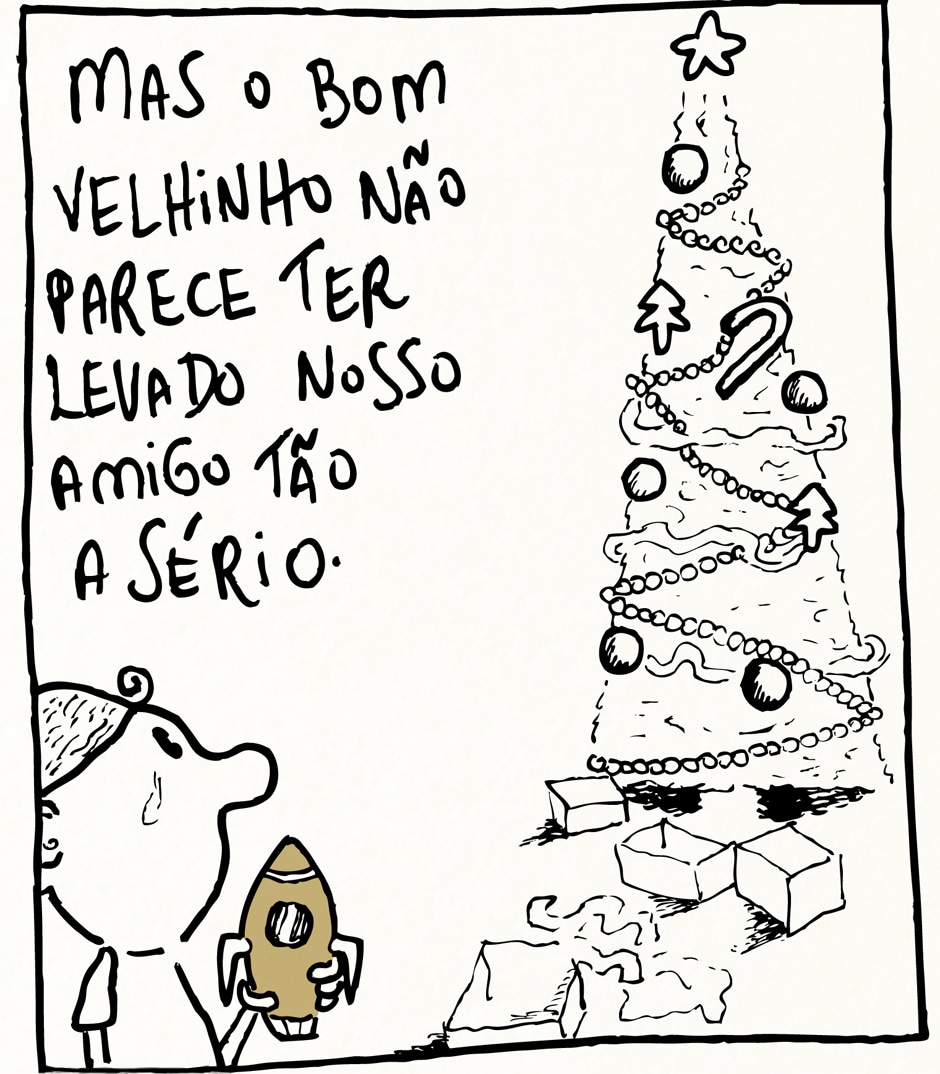 MAS O BOM
VELHiNHO NÃO
PARECE TER
LEVADO NOSSO
AMiGO TÃO
A SÉRiO.